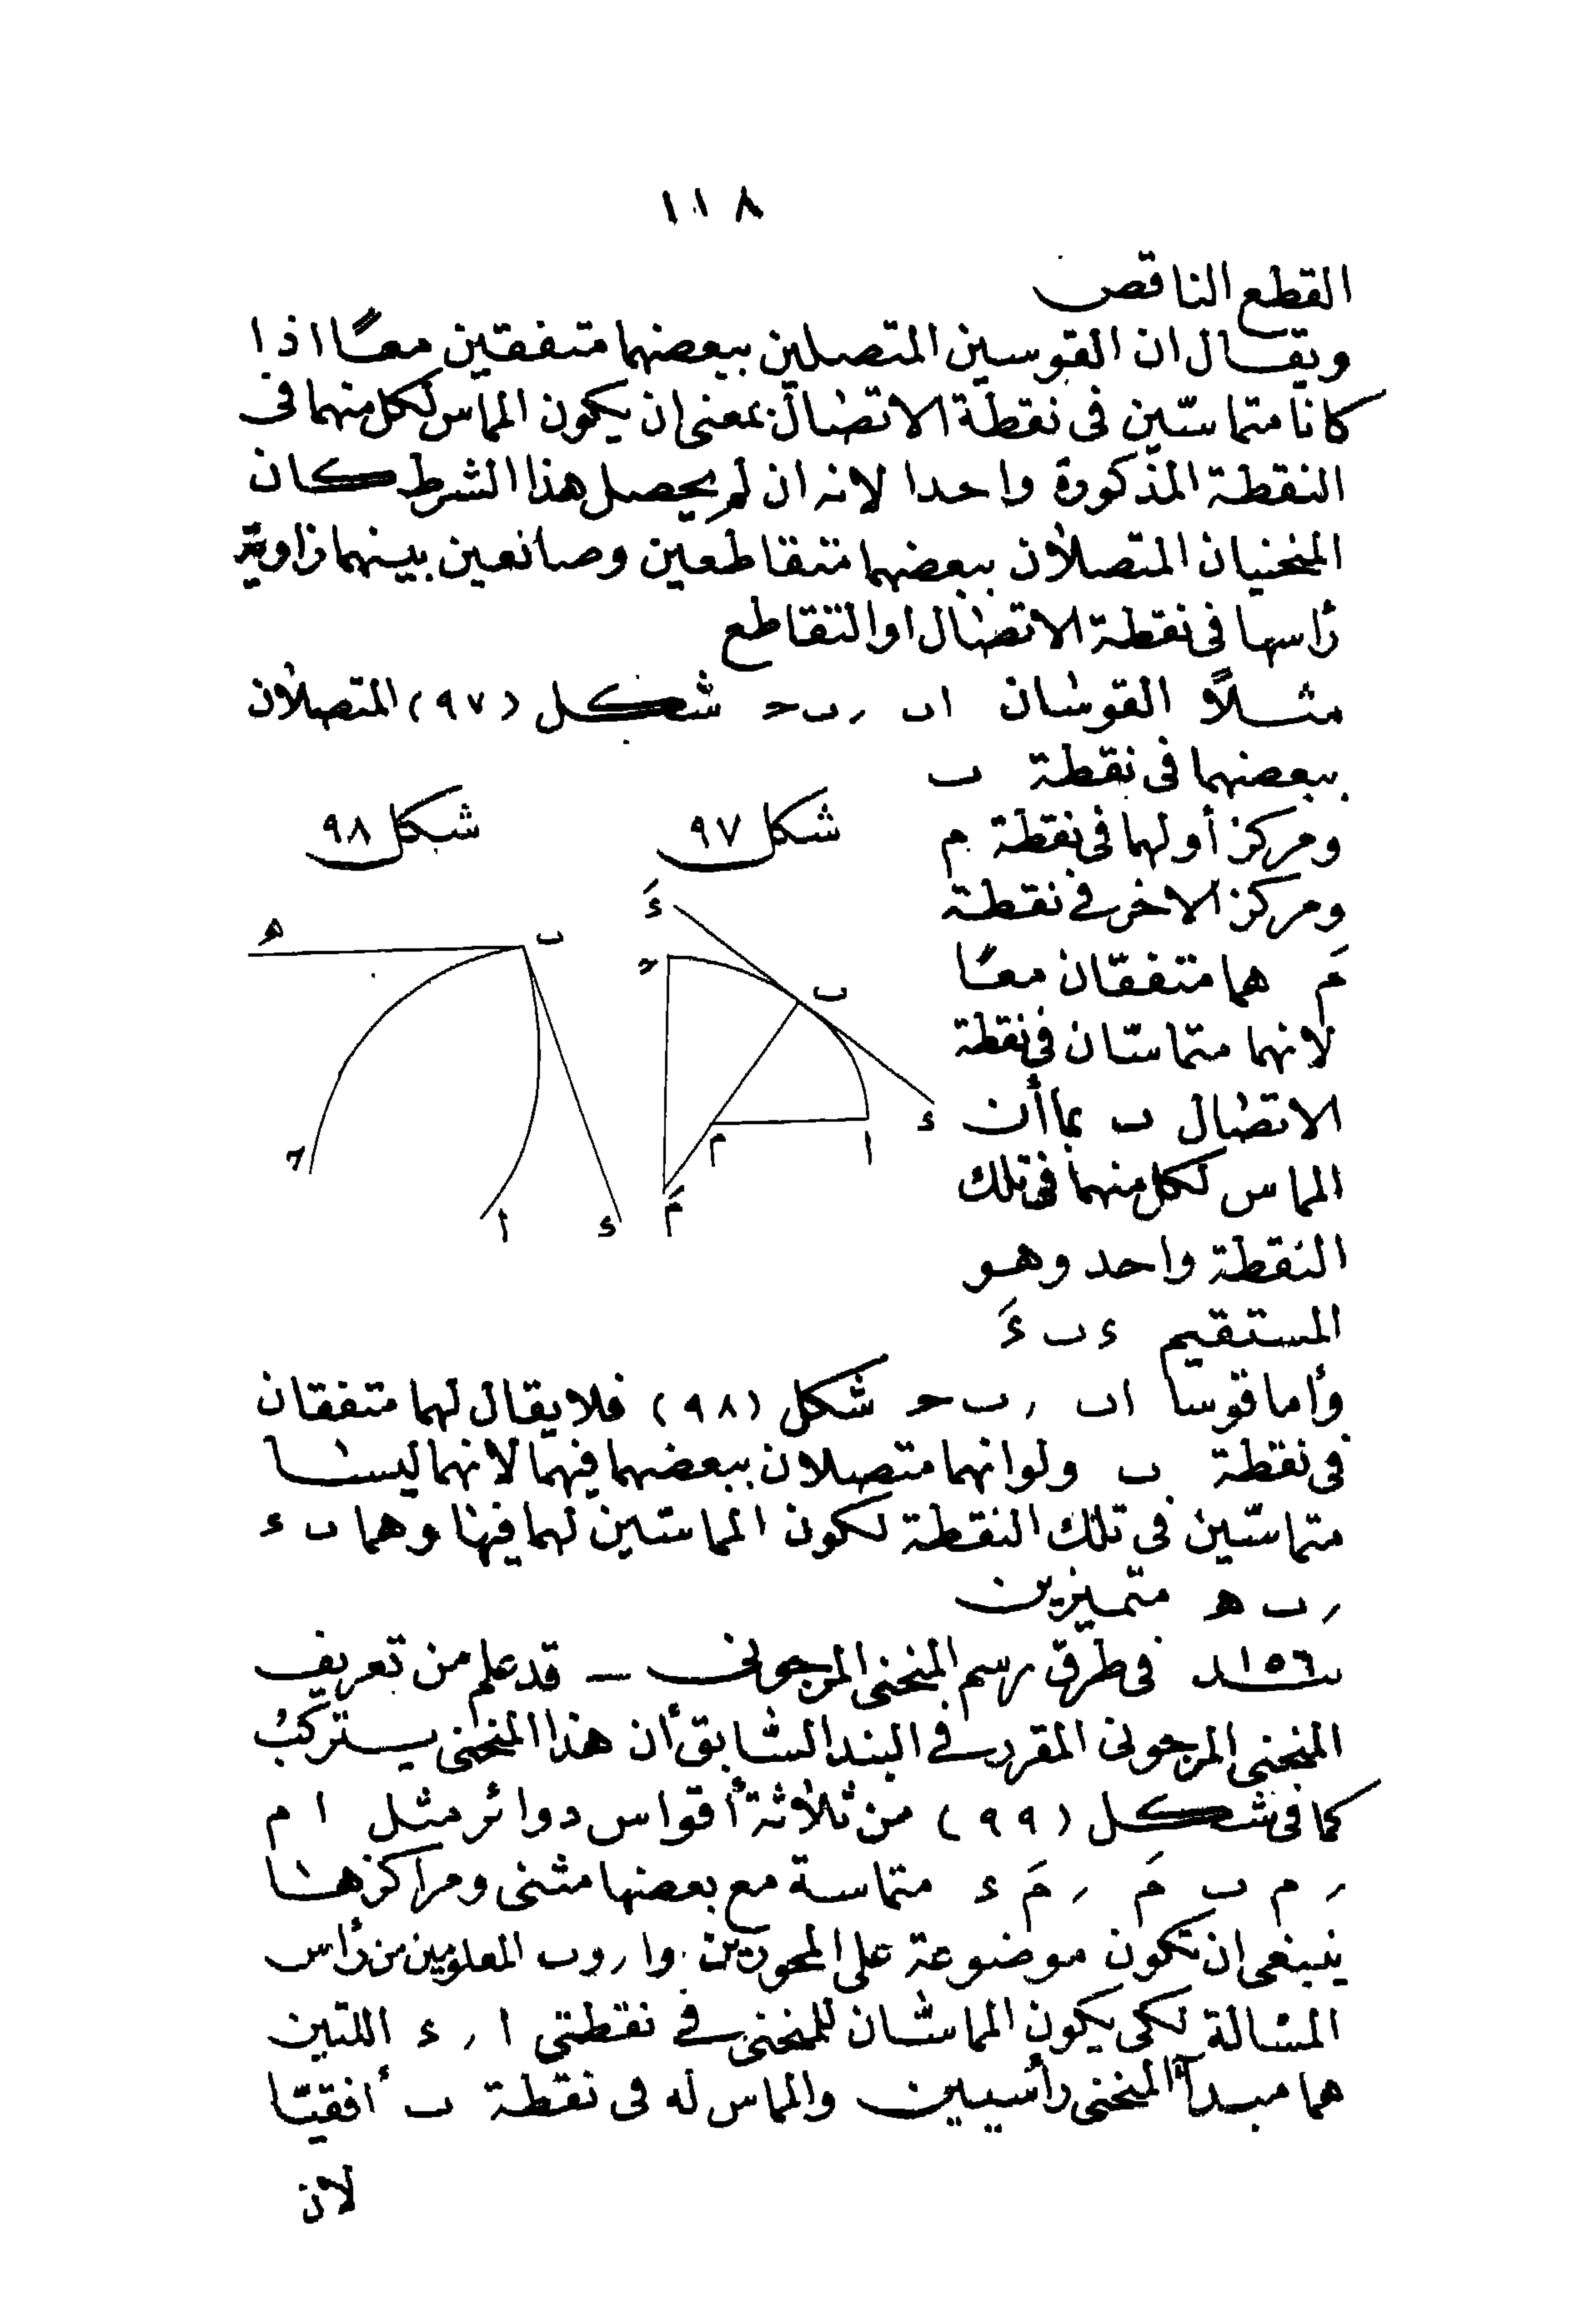 ١١٨
القطع الناقص
ويقال ان القوسين المتصلين ببعضهما متفقين معًا اذا
كانا متماسّين فى نقطة الاتصال بمعنى ان يكون المماس لكل منهما فى
النقطة المذكورة واحدا لانه ان لم يحصل هذا الشرط كان
المنحنيان المتصلان ببعضهما متقاطعين وصانعين بينهما زاوية
رأسها فى نقطة الاتصال او التقاطع
مثلاً القوسان اب ر ب ح شكل (٩٧) المتصلان
ببعضهما فى نقطة ب
ومركز أولهما فى نقطة م
ومركز الاخر فى نقطة
مَ هما متفقان معًا
لانهما متماسّان فى نقطة
الاتصال ب بما أن
المماس لكل منهما فى تلك
النقطة واحد وهو
المستقيم ء ب ءَ
شكل ٩٧
ءَ
ح
ب
ء
م
ا
مَ
شكل ٩٨
ه
ب
ح
ا
ء
وأما قوسا اب ر ب ح شكل (٩٨) فلا يقال لهما متفقان
فى نقطة ب ولو انهما متصلان ببعضهما فيهما لانهما ليسا
متماسّين فى تلك النقطة لكون المماسّين لهما فيها وهما ب ء
ر ب ه متميزين
بند ١٥٦ فى طرق رسم المنحنى المرجونى — قد علم من تعريف
المنحنى المرجونى المقرر فى البند السابق أن هذا المنحنى يتركب
كما فى شكل (٩٩) من ثلاثة أقواس دوائر مثل ا م
ر م ب مَ ر مَ ء متماسة مع بعضها مثنى ومراكزها
ينبغى ان تكون موضوعة على المحورين وا ر وب المعلومين من رأس
المسالة لكى يكون المماسّان للمنحنى فى نقطتى ا ر ء اللتين
هما مبدأ المنحنى رأسيين والمماس له فى نقطة ب أفقيّا
لأن